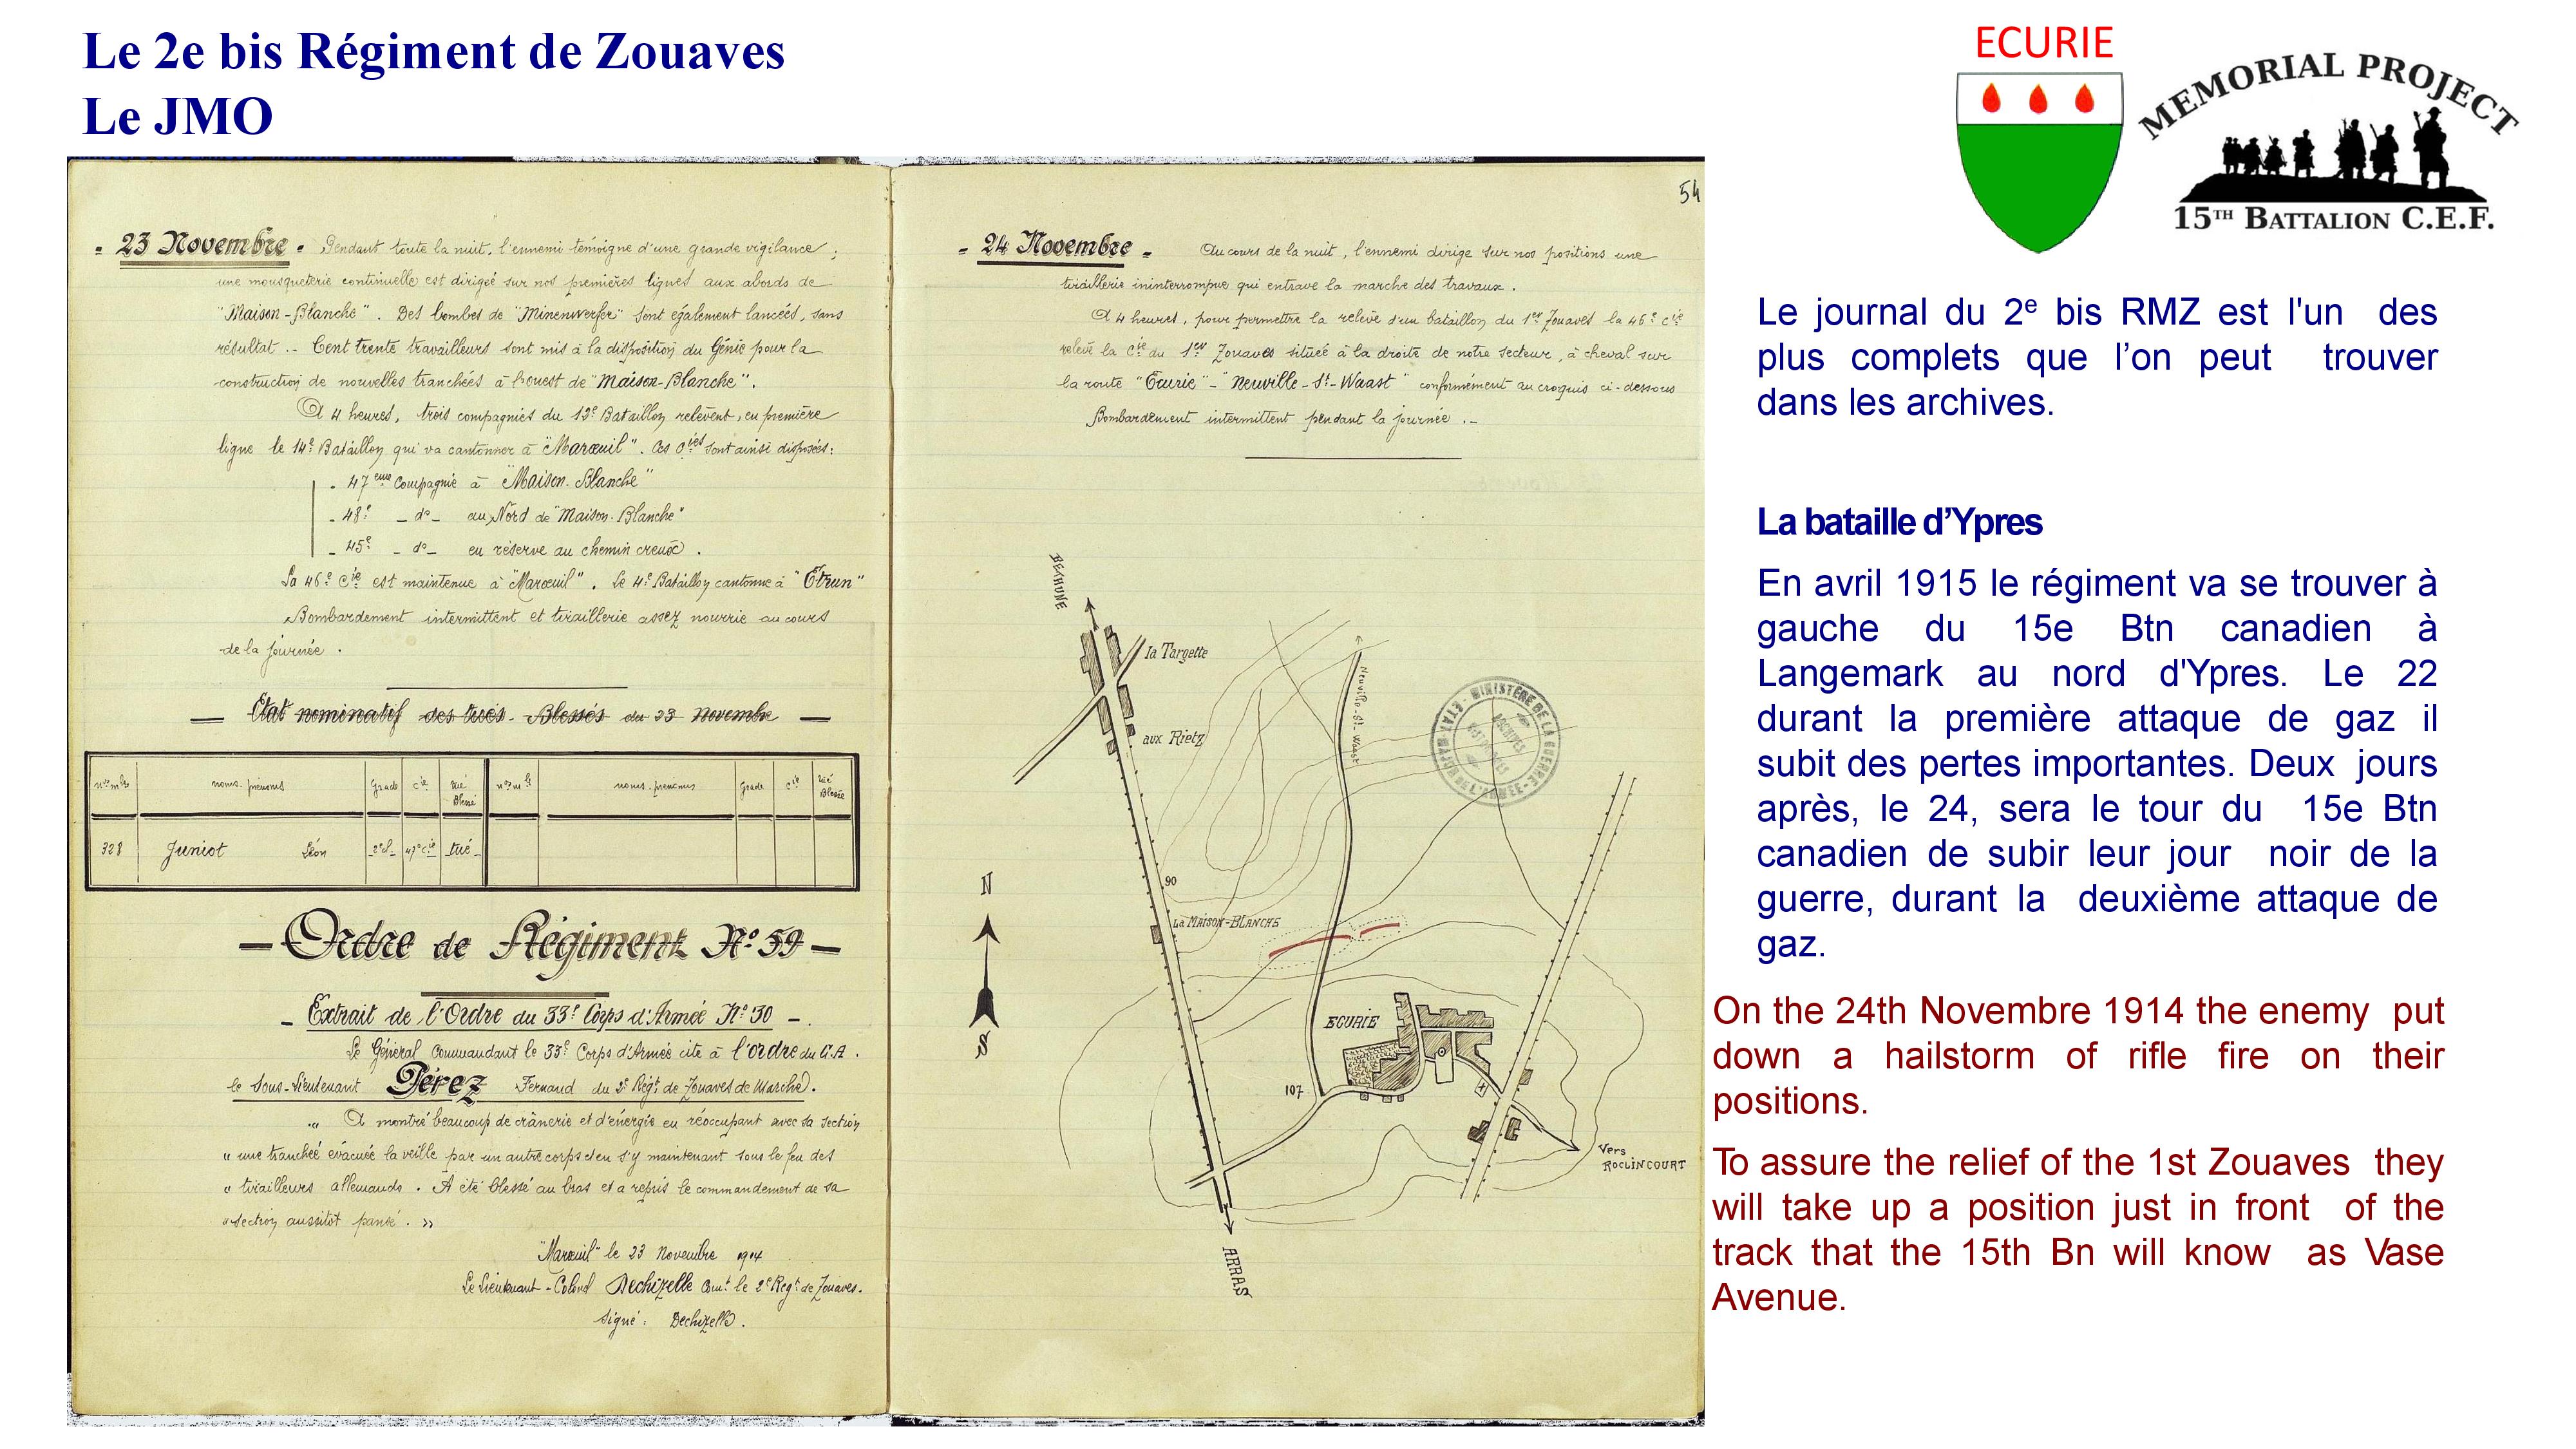 Le 2e bis Régiment de Zouaves
Le JMO
ECURIE
MEMORIAL PROJECT
15TH BATTALION C.E.F.
- 23 Novembre - Pendant toute la nuit, l'ennemi témoigne d'une grande vigilance ;
une mousqueterie continuelle est dirigée sur nos premières lignes aux abords de
"Maison-Blanche". Des bombes de "Minenwerfer" sont également lancées, sans
résultat .- Cent trente travailleurs sont mis à la disposition du Génie pour la
construction de nouvelles tranchées à l'ouest de "Maison-Blanche".
A 4 heures, trois compagnies du 12e Bataillon relèvent, en première
ligne le 14e Bataillon qui va cantonner à "Marœuil". Ces Cies sont ainsi disposées:
- 47eme Compagnie à "Maison-Blanche"
- 48e - do - au Nord de "Maison-Blanche"
- 45e - do - en réserve au chemin creux.
La 46e Cie est maintenue à "Marœuil". Le 4e Bataillon cantonne à "Etrun"
Bombardement intermittent et tiraillerie assez nourrie au cours
de la journée.
— Etat nominatif des tués-Blessés du 23 Novembre —
nos mles noms-prénoms Grade Cie tué Blessé nos mle noms-prénoms Grade Cie tué Blessé
328 Juniot Léon 2e S. 47e Cie tué
— Ordre de Régiment No 59 —
- Extrait de l'Ordre du 33e Corps d'Armée No 30 -
Le Général Commandant le 33e Corps d'Armée cite à l'ordre du C.A.
le Sous-Lieutenant Pérez Fernand du 2e Régt de Zouaves de Marche.
"A montré beaucoup de crânerie et d'énergie en réoccupant avec sa section
" une tranchée évacuée la veille par un autre corps et en s'y maintenant sous le feu des
" tirailleurs allemands. A été blessé au bras et a repris le commandement de sa
" section aussitôt pansé. »
"Marœuil" le 23 Novembre 1914
Le Lieutenant-Colonel Dechizelle Comt le 2e Régt de Zouaves.
Signé : Dechizelle.
54
- 24 Novembre - Au cours de la nuit, l'ennemi dirige sur nos positions une
tiraillerie ininterrompue qui entrave la marche des travaux.
A 4 heures, pour permettre la relève d'un bataillon du 1er Zouaves la 46e Cie
relève la Cie du 1er Zouaves située à la droite de notre secteur, à cheval sur
la route "Ecurie"-"Neuville-St-Waast" conformément au croquis ci-dessous
Bombardement intermittent pendant la journée .-
BETHUNE
la Targette
aux Rietz
Neuville-St-Waast
MINISTÈRE DE LA GUERRE
ARCHIVES
N
S
90
La MAISON-BLANCHE
ECURIE
107
Vers
ROCLINCOURT
ARRAS
Le journal du 2e bis RMZ est l'un des
plus complets que l’on peut trouver
dans les archives.
La bataille d’Ypres
En avril 1915 le régiment va se trouver à
gauche du 15e Btn canadien à
Langemark au nord d'Ypres. Le 22
durant la première attaque de gaz il
subit des pertes importantes. Deux jours
après, le 24, sera le tour du 15e Btn
canadien de subir leur jour noir de la
guerre, durant la deuxième attaque de
gaz.
On the 24th Novembre 1914 the enemy put
down a hailstorm of rifle fire on their
positions.
To assure the relief of the 1st Zouaves they
will take up a position just in front of the
track that the 15th Bn will know as Vase
Avenue.